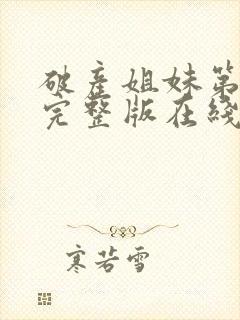 破产姐妹第
完整版在线
寒若雪